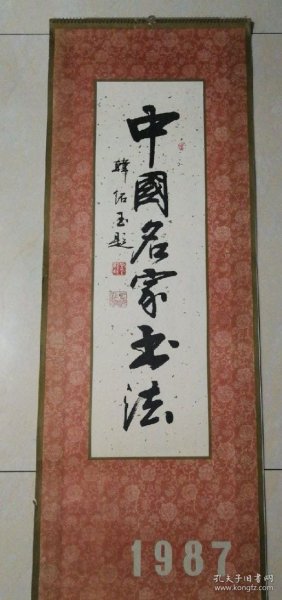 中國名家书法
韩佑玉题
1987
孔夫子旧书网
kongfz.com